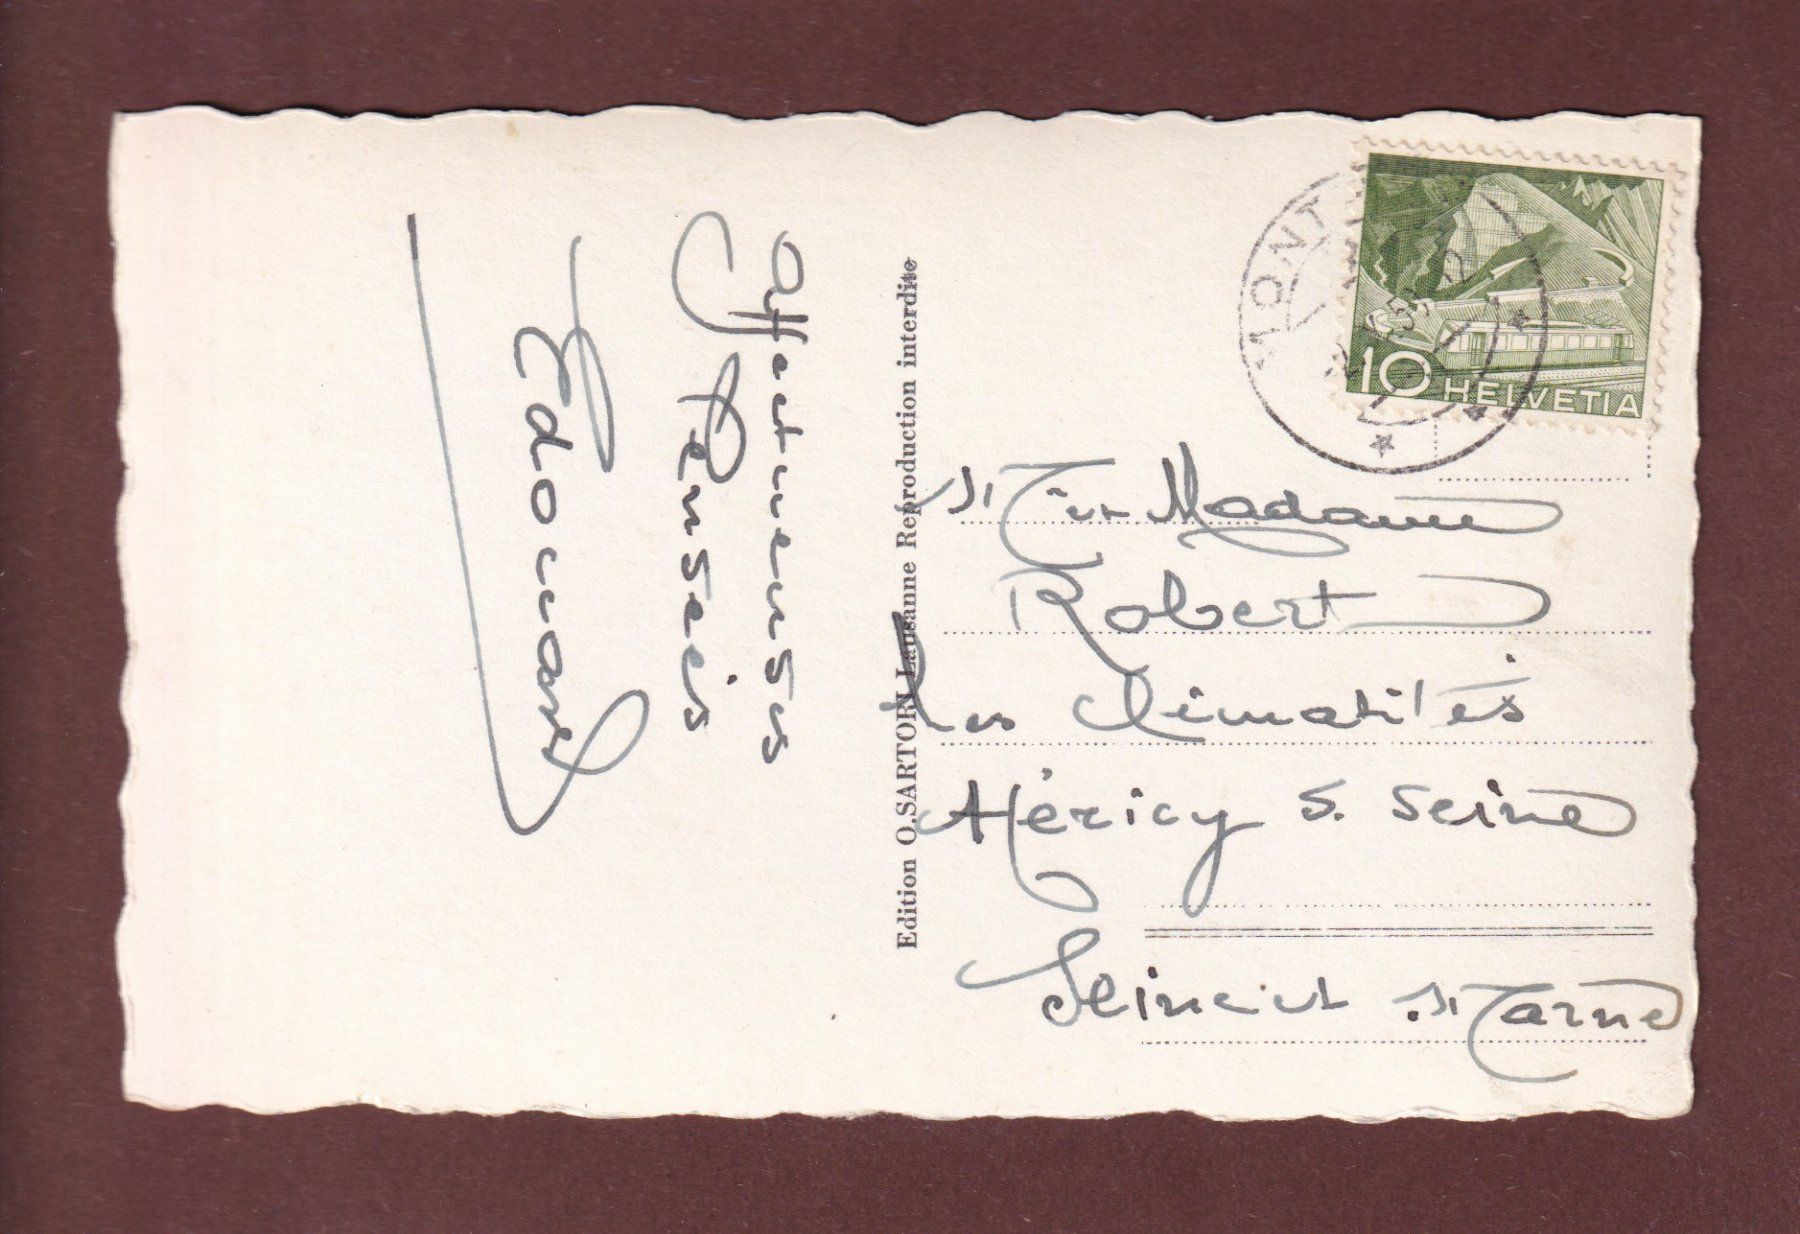 Affectueuses
Pensées
Edouard
Edition O. SARTORI Lausanne Reproduction interdite
MONT
10 HELVETIA
M et Madame
Robert
Les Climatités
Héricy s. Seine
Seine et Marne